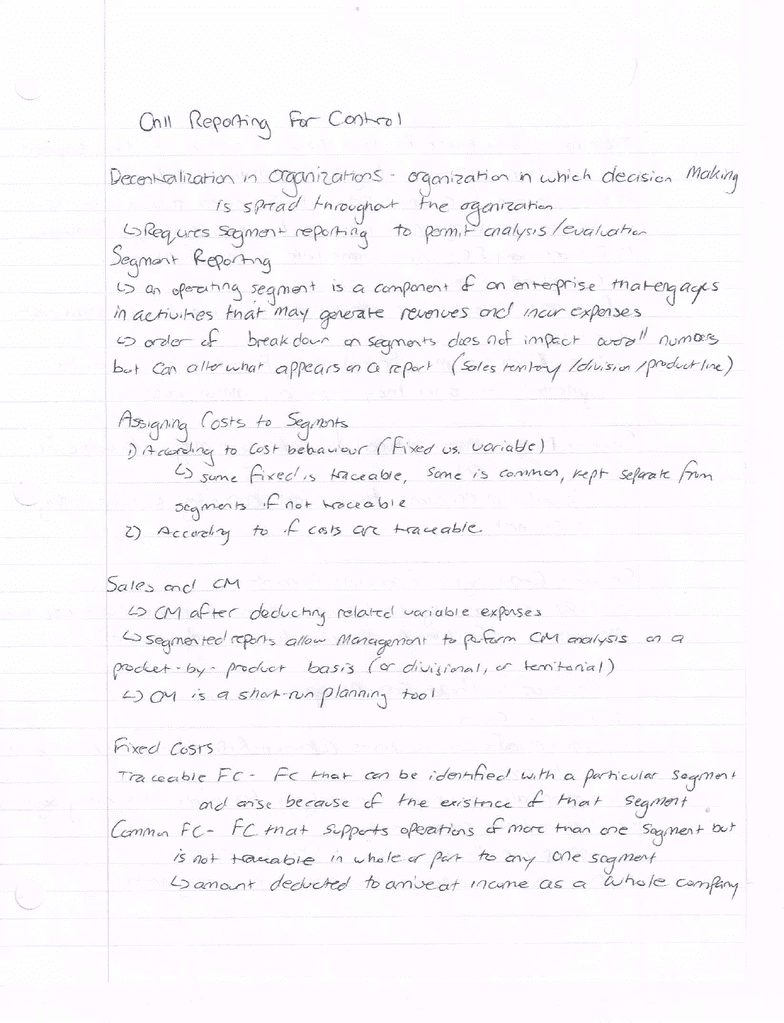 Ch11 Reporting For Control
Decentralization in Organizations - organization in which decision Making
is spread throughout the oganization
↳ Requires segment reporting to permit analysis/evaluation
Segment Reporting
↳ an operating segment is a component of an enterprise that engages
in activities that may generate revenues and incur expenses
↳ order of breakdown on segments does not impact overall numbers
but can alter what appears on a report (sales territory/division/product line)
Assigning Costs to Segments
1) According to cost behaviour (fixed vs. variable)
↳ some fixed is traceable, some is common, kept separate from
segments if not traceable
2) According to if costs are traceable.
Sales and CM
↳ CM after deducting related variable expenses
↳ segmented reports allow Management to perform CM analysis on a
product-by-product basis (or divisional, or territorial)
↳ CM is a short-run planning tool
Fixed Costs
Traceable FC - FC that can be identified with a particular segment
and arise because of the existence of that segment
Common FC - FC that supports operations of more than one segment but
is not traceable in whole or part to any one segment
↳ amount deducted to arrive at income as a whole company